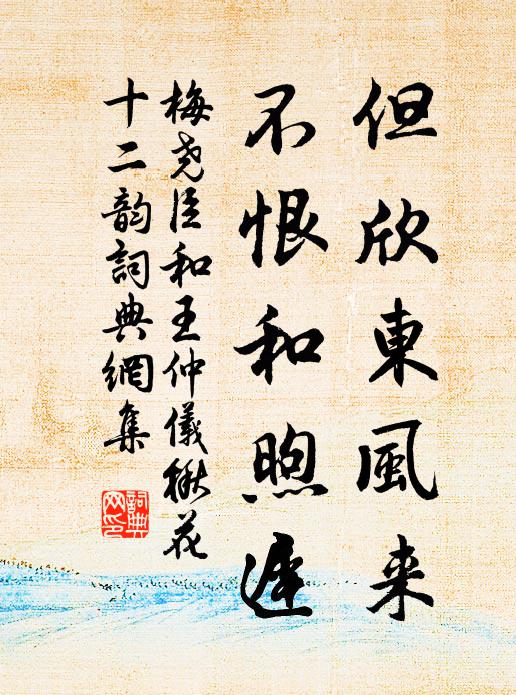 但欣東風来
不恨和煦遲
梅尧臣和王仲儀楸花
十二韵詞典網集
詞典网印